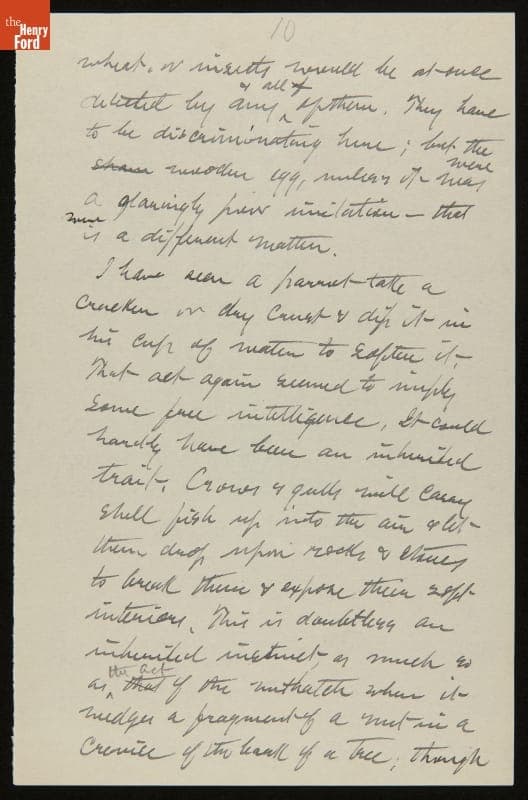 the
Henry
Ford
10
wheat, or insects would be at once
detected by any & all of them. They have
to be discriminating here; but the
sham wooden egg, unless it was were
a glaringly poor imitation — that
is were a different matter.
I have seen a parrot take a
cracker or dry crust & dip it in
his cup of water to soften it.
That act again seemed to imply
some free intelligence. It could
hardly have been an inherited
trait. Crows & gulls will carry
shell fish up into the air & let
them drop upon rocks & stones
to break them & expose their soft
interiors. This is doubtless an
inherited instinct, as much so
as that the act of the nuthatch when it
wedges a fragment of a nut in a
crevice of the bark of a tree; though